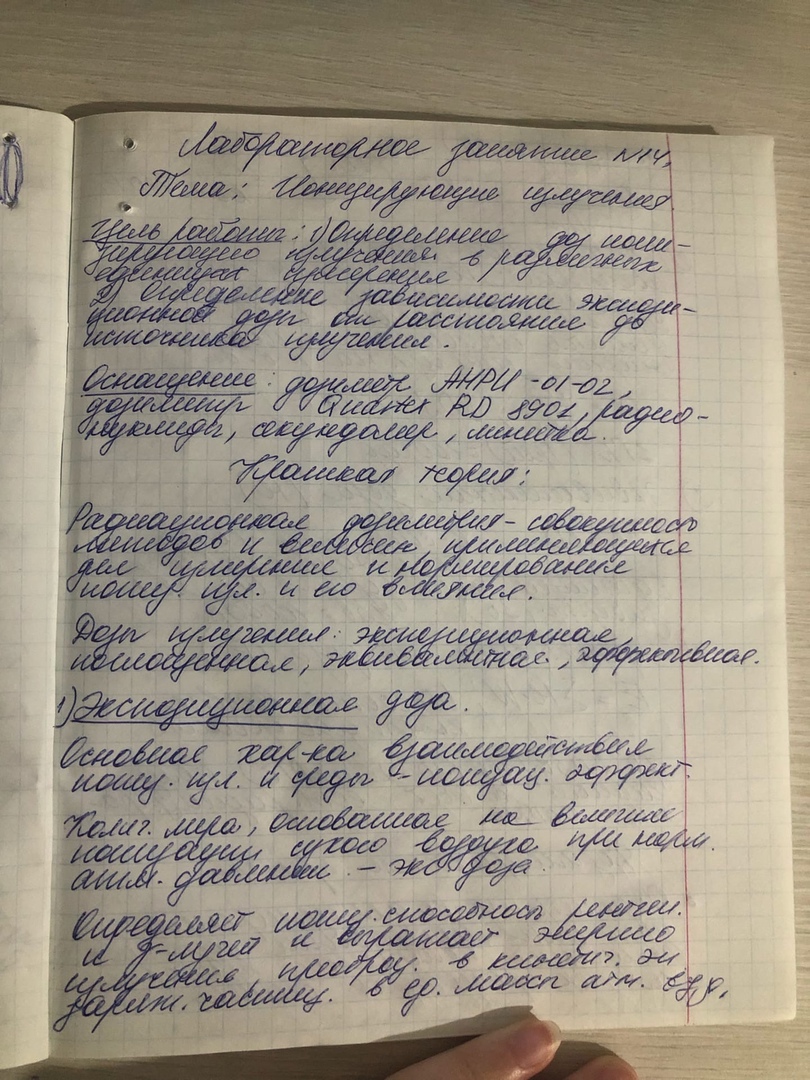 Лабораторное занятие №14.
Тема: Ионизирующие излучения
Цель работы: 1) Определение доз иони-
зирующего излучения в различных
единицах измерения
2) Определение зависимости экспози-
ционной дозы от расстояния до
источника излучения.
Оснащение: дозиметр АНРИ-01-02,
дозиметр Quartex RD 8901, радио-
нуклиды, секундомер, линейка.
Краткая теория:
Радиационная дозиметрия - совокупность
методов и величин, применяющихся
для измерения и нормирования
иониз. изл. и его влияния.
Дозы излучения: экспозиционная,
поглощенная, эквивалентная, эффективная.
1) Экспозиционная доза.
Основная хар-ка взаимодействия
иониз. изл. и среды - ионизац. эффект.
Колич. мера, основанная на величине
ионизации сухого воздуха при норм.
атм. давлении - экс доза.
Определяет иониз. способность рентген.
и γ-лучей и выражает энергию
излучения, преобраз. в кинетич. эн
заряж. частиц. в ед. массы атм. возд.